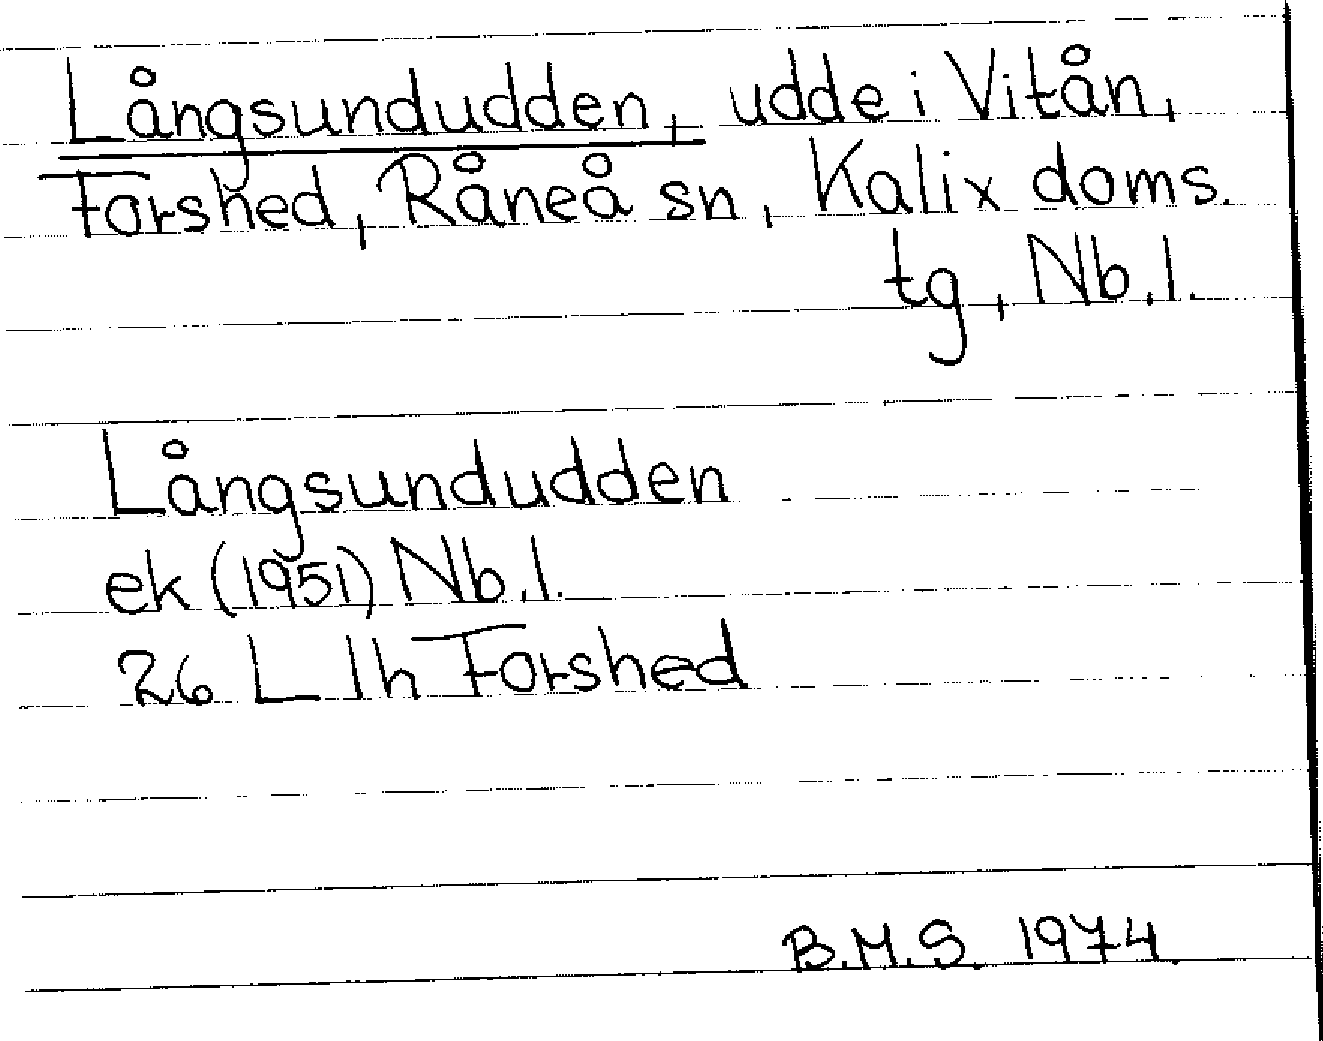 Långsundudden, udde i Vitån,
Forshed, Råneå sn, Kalix doms.
tg, Nb.l.
Långsundudden
ek (1951) Nb.l.
26 L lh Forshed
B.M.S. 1974.